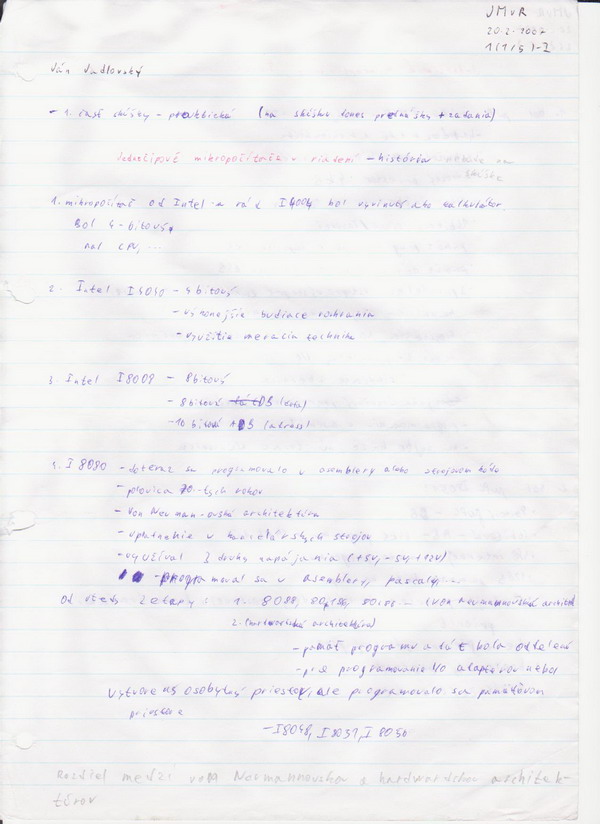 JMvR
20.2.2007
Ján Jadlovský
- 1. časť skúšky - praktická (na skúšku dones prednášky + zadania)
Jednočipové mikropočítače v riadení - história
1. mikropočítač od Intel-a rád I4004 bol vyvinutý ako kalkulátor.
Bol 4-bitový
mal CPU, ...
2. Intel I4040 - 4 bitový
- výkonejšie budiace rozhrania
- využitie meracia technika
3. Intel I8008 - 8bitový
- 8bitová DB (data)
- 10 bitová ADB (adress)
4. I 8080 - doteraz sa programovalo v asemblery alebo strojovom kóde
- polovica 70-tych rokov
- Von Neuman-ovská architektúra
- uplatnenie v kancelárskych strojoch
- využíval 3 druhy napájania (+5V, -5V, +12V)
- programoval sa v asemblery, pascaly, ...
Od vtedy 2 etapy: 1. 8088, 80186, 80188 - (von neumannovská architekt
2. (hardwardská architektúra)
- pamäť programu a dát bola oddelená
- pre programovanie I/O adaptérov nebol
vytvorený osobytný priestor, ale programovalo sa pamäťovom
priestore
- I8048, I8031, I 8050
Rozdiel medzi von Neumannovskou a hardwardskou architek-
túrov